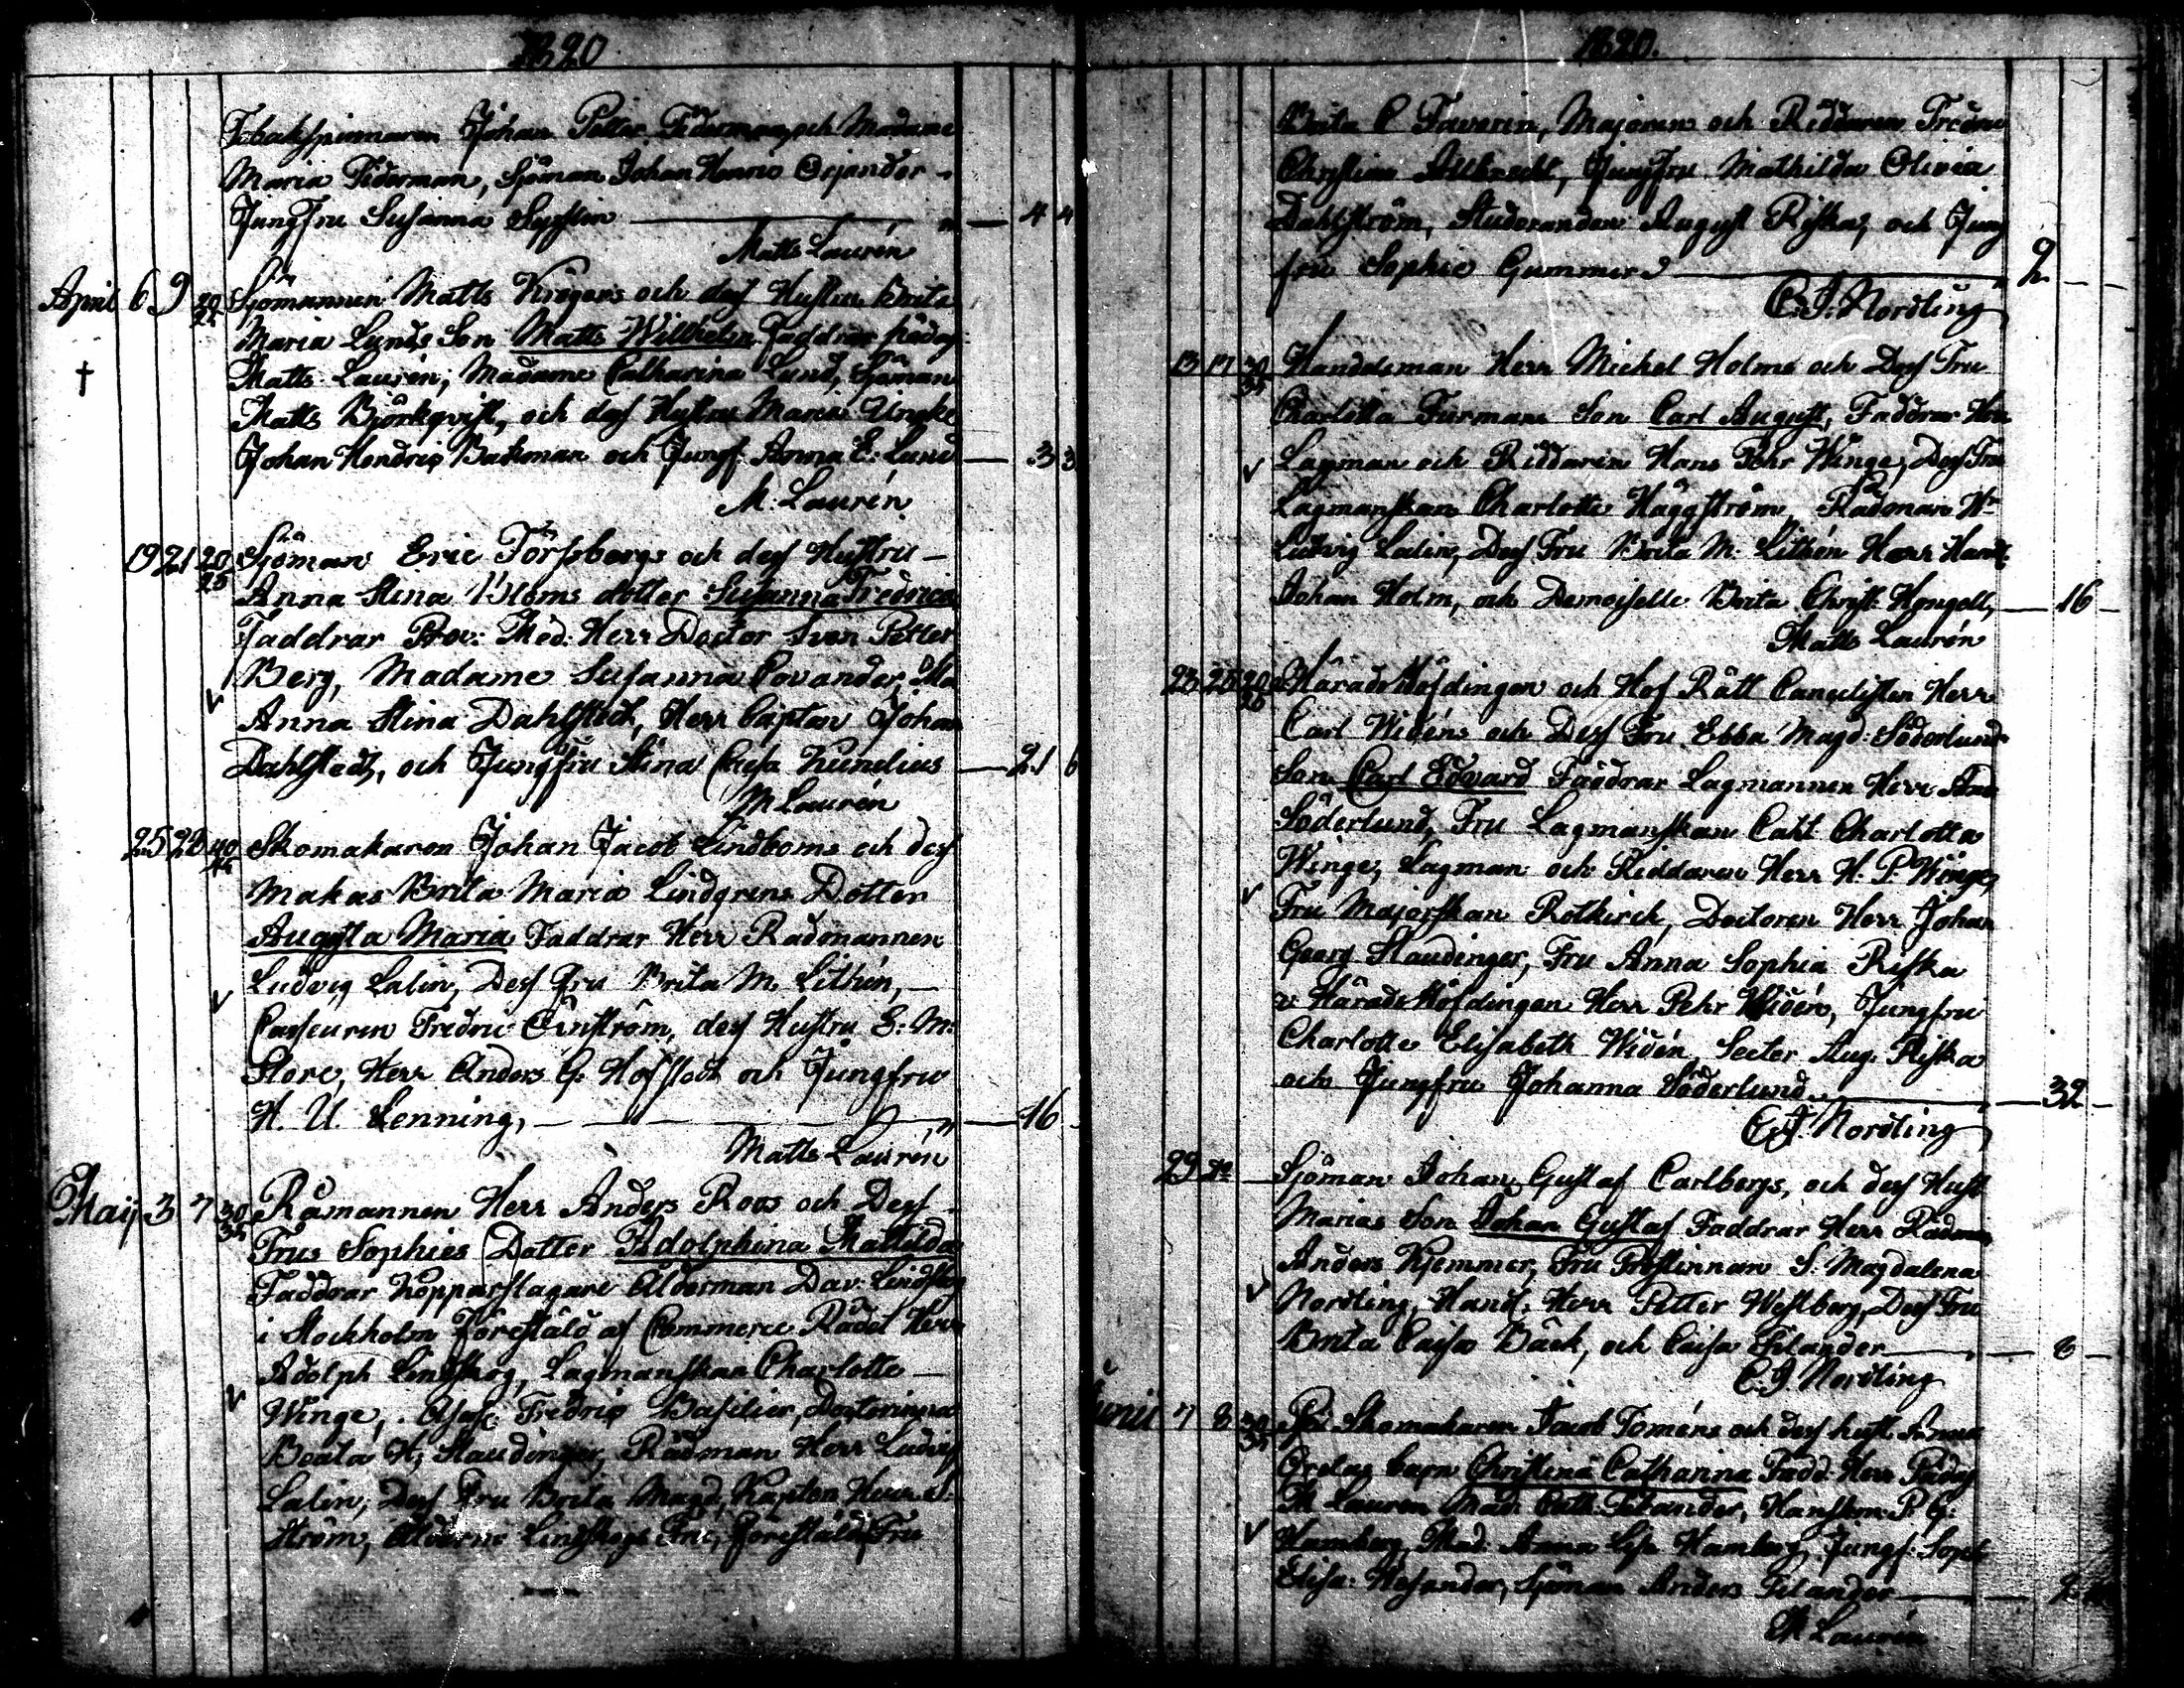 1820
Tobakspinnaren Johan Petter Federman, och Madame
Maria Federman, Sjöman Johan Henric
Jungfru Susanna — 4 4
Matts Laurén
April 6 9 20/25 Sjömannen Matts Krögers och dess Hustru Brita
Maria Lunds Son Matts Wilhelm Faddrar Rådm
† Matts Laurén, Madame Catharina Lund, Sjöman
Matts Björkqvist, och dess Hustru Maria
Johan Hendric Backman och Jungf: Anna E: Lund — 3 3
M: Laurén
19 21 20/25 Sjöman Eric Törfsbergs och dess Hustru —
Anna Stina Bloms dotter Susanna Fredrica
Faddrar Prov: Med: Herr Doctor Sven Petter
Berg, Madame Susanna Povander,
v Anna Stina Dahlstedt, Herr Capten Johan
Dahlstedt, och Jungfru Stina Caisa Kumelius — 21 6
M Laurén
25 28 40/45 Skomakaren Johan Jacob Lindboms och dess
Makas Brita Maria Lindgrens Dotter
Augusta Maria Faddrar Herr Rådmannen
Ludvig Lalin, Dess Fru Brita M. Lithén, —
v Casseuren Fredric Örnström, dess Hustru E: M:
Store, Herr Anders G: Hofstedt och Jungfru
H. U. Lenning, — 16
Matts Laurén
Maij 3 7 30/35 Råmannen Herr Anders Roos och Dess
Frus Sophies Dotter Adolphina Mathilda
Faddrar Kopparslagare Ålderman Dav: Lindskog
i Stockholm Förestäld af Commerce Rådet Herr
Adolph Lindskog, Lagmanskan Charlotte —
v Winge, Fredric Basilier, Doctorinnan
Beata H: Staudinger, Rådman Herr Ludvig
Lalin, Dess Fru Brita Magd, Kapten
ström, Lindskogs Fru, förestäld Fru
1820.
Brita C Faverin, Majoren och Riddaren Fredric
Christian Albrecht, Jungfru Mathilda Olivia
Dahlström, Studeranden August Riska, och Jung
fru Sophie Gummer — 2 —
C. J. Nordling
13 17 30/35 Handelsman Herr Michel Holms och Dess Fru
Charlotta Furmans Son Carl August, Faddrar Herr
v Lagman och Riddaren Hans Pehr Winge, Dess Fru
Lagmanskan Charlotte Häggström, Rådman Hr
Ludvig Lalin, Dess Fru Brita M. Lithén Herr Handl:
Johan Holm, och Demoiselle Brita Christ: Hongell, — 16 —
Matts Laurén
23 25 20/25 v: Härads Höfdingen och Hof Rätt Cancellisten Herr
Carl Widéns och Dess Fru Ebba Magd: Söderlunds
Son Carl Edvard Faddrar Lagmannen Herr And:
Söderlund, Fru Lagmanskan Cath Charlotta
Winge, Lagman och Riddaren Herr H. P. Winge,
v Fru Majorskan Rotkirch, Doctoren Herr Johan
Georg Staudinger, Fru Anna Sophia Riska
v: Härads Höfdingen Herr Pehr Widén, Jungfru
Charlotte Elisabeth Widén, Secter Aug: Riska
och Jungfru Johanna Söderlund. — 32 —
C. J. Nordling
29 Sjöman Johan Gustaf Carlbergs, och dess Hust
Marias Son Johan Gustaf Faddrar Herr Rådman
Anders Kjemmer, Fru Prostinnan S: Magdalena
v Nordling, Handl: Herr Petter Westberg, Dess Fru
Brita Caisa Bäck, och Caisa Filander — 8 —
C. J. Nordling
Junii 7 8 30/35 Skomakaren Jacob Toméns och dess hust Anna
Gretas barn Christina Catharina Fadd: Herr Rådm
M Laurén Mad: Cath: Filander, P. G:
v Hamberg, Mad: Anna Lisa Hamberg, Jungf: Soph
Elisa: Sjöman Anders Filander —
M Laurén